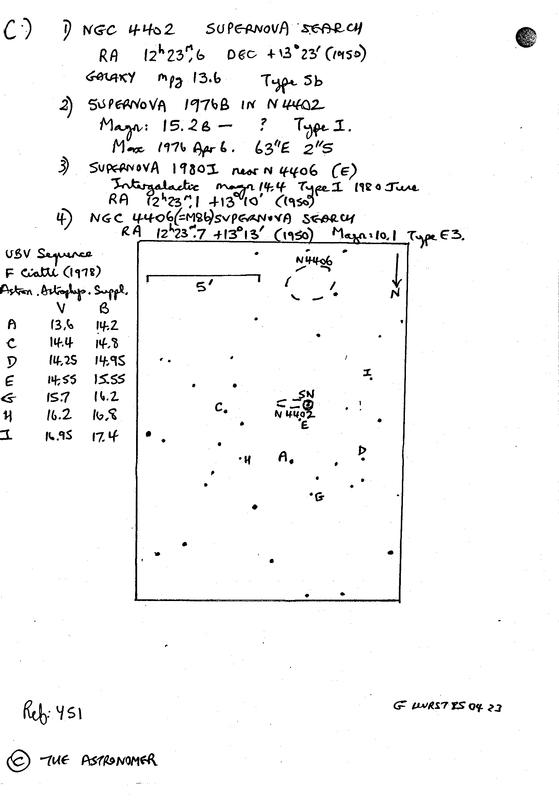 C:) 1) NGC 4402 SUPERNOVA SEARCH
RA 12ʰ23ᵐ.6 DEC +13°23' (1950)
GALAXY mpg 13.6 Type Sb
2) SUPERNOVA 1976B IN N4402
Magn: 15.2B — ? Type I.
Max 1976 Apr 6. 63"E 2"S
3) SUPERNOVA 1980I near N 4406 (E)
Intergalactic magn 14.4 Type I 1980 June
RA 12ʰ23ᵐ.1 +13°10' (1950)
4) NGC 4406(=M86) SUPERNOVA SEARCH
RA 12ʰ23ᵐ.7 +13°13' (1950) Magn:10.1 Type E3.
UBV Sequence
F Ciatti (1978)
Astron. Astrophys. Suppl.
V B
A 13.6 14.2
C 14.4 14.8
D 14.25 14.95
E 14.55 15.55
G 15.7 16.2
H 16.2 16.8
I 16.95 17.4
N4406
5'
N
I
SN
C
N 4402
E
D
H
A
G
Ref: YS1
G HURST 85 04 23
© THE ASTRONOMER